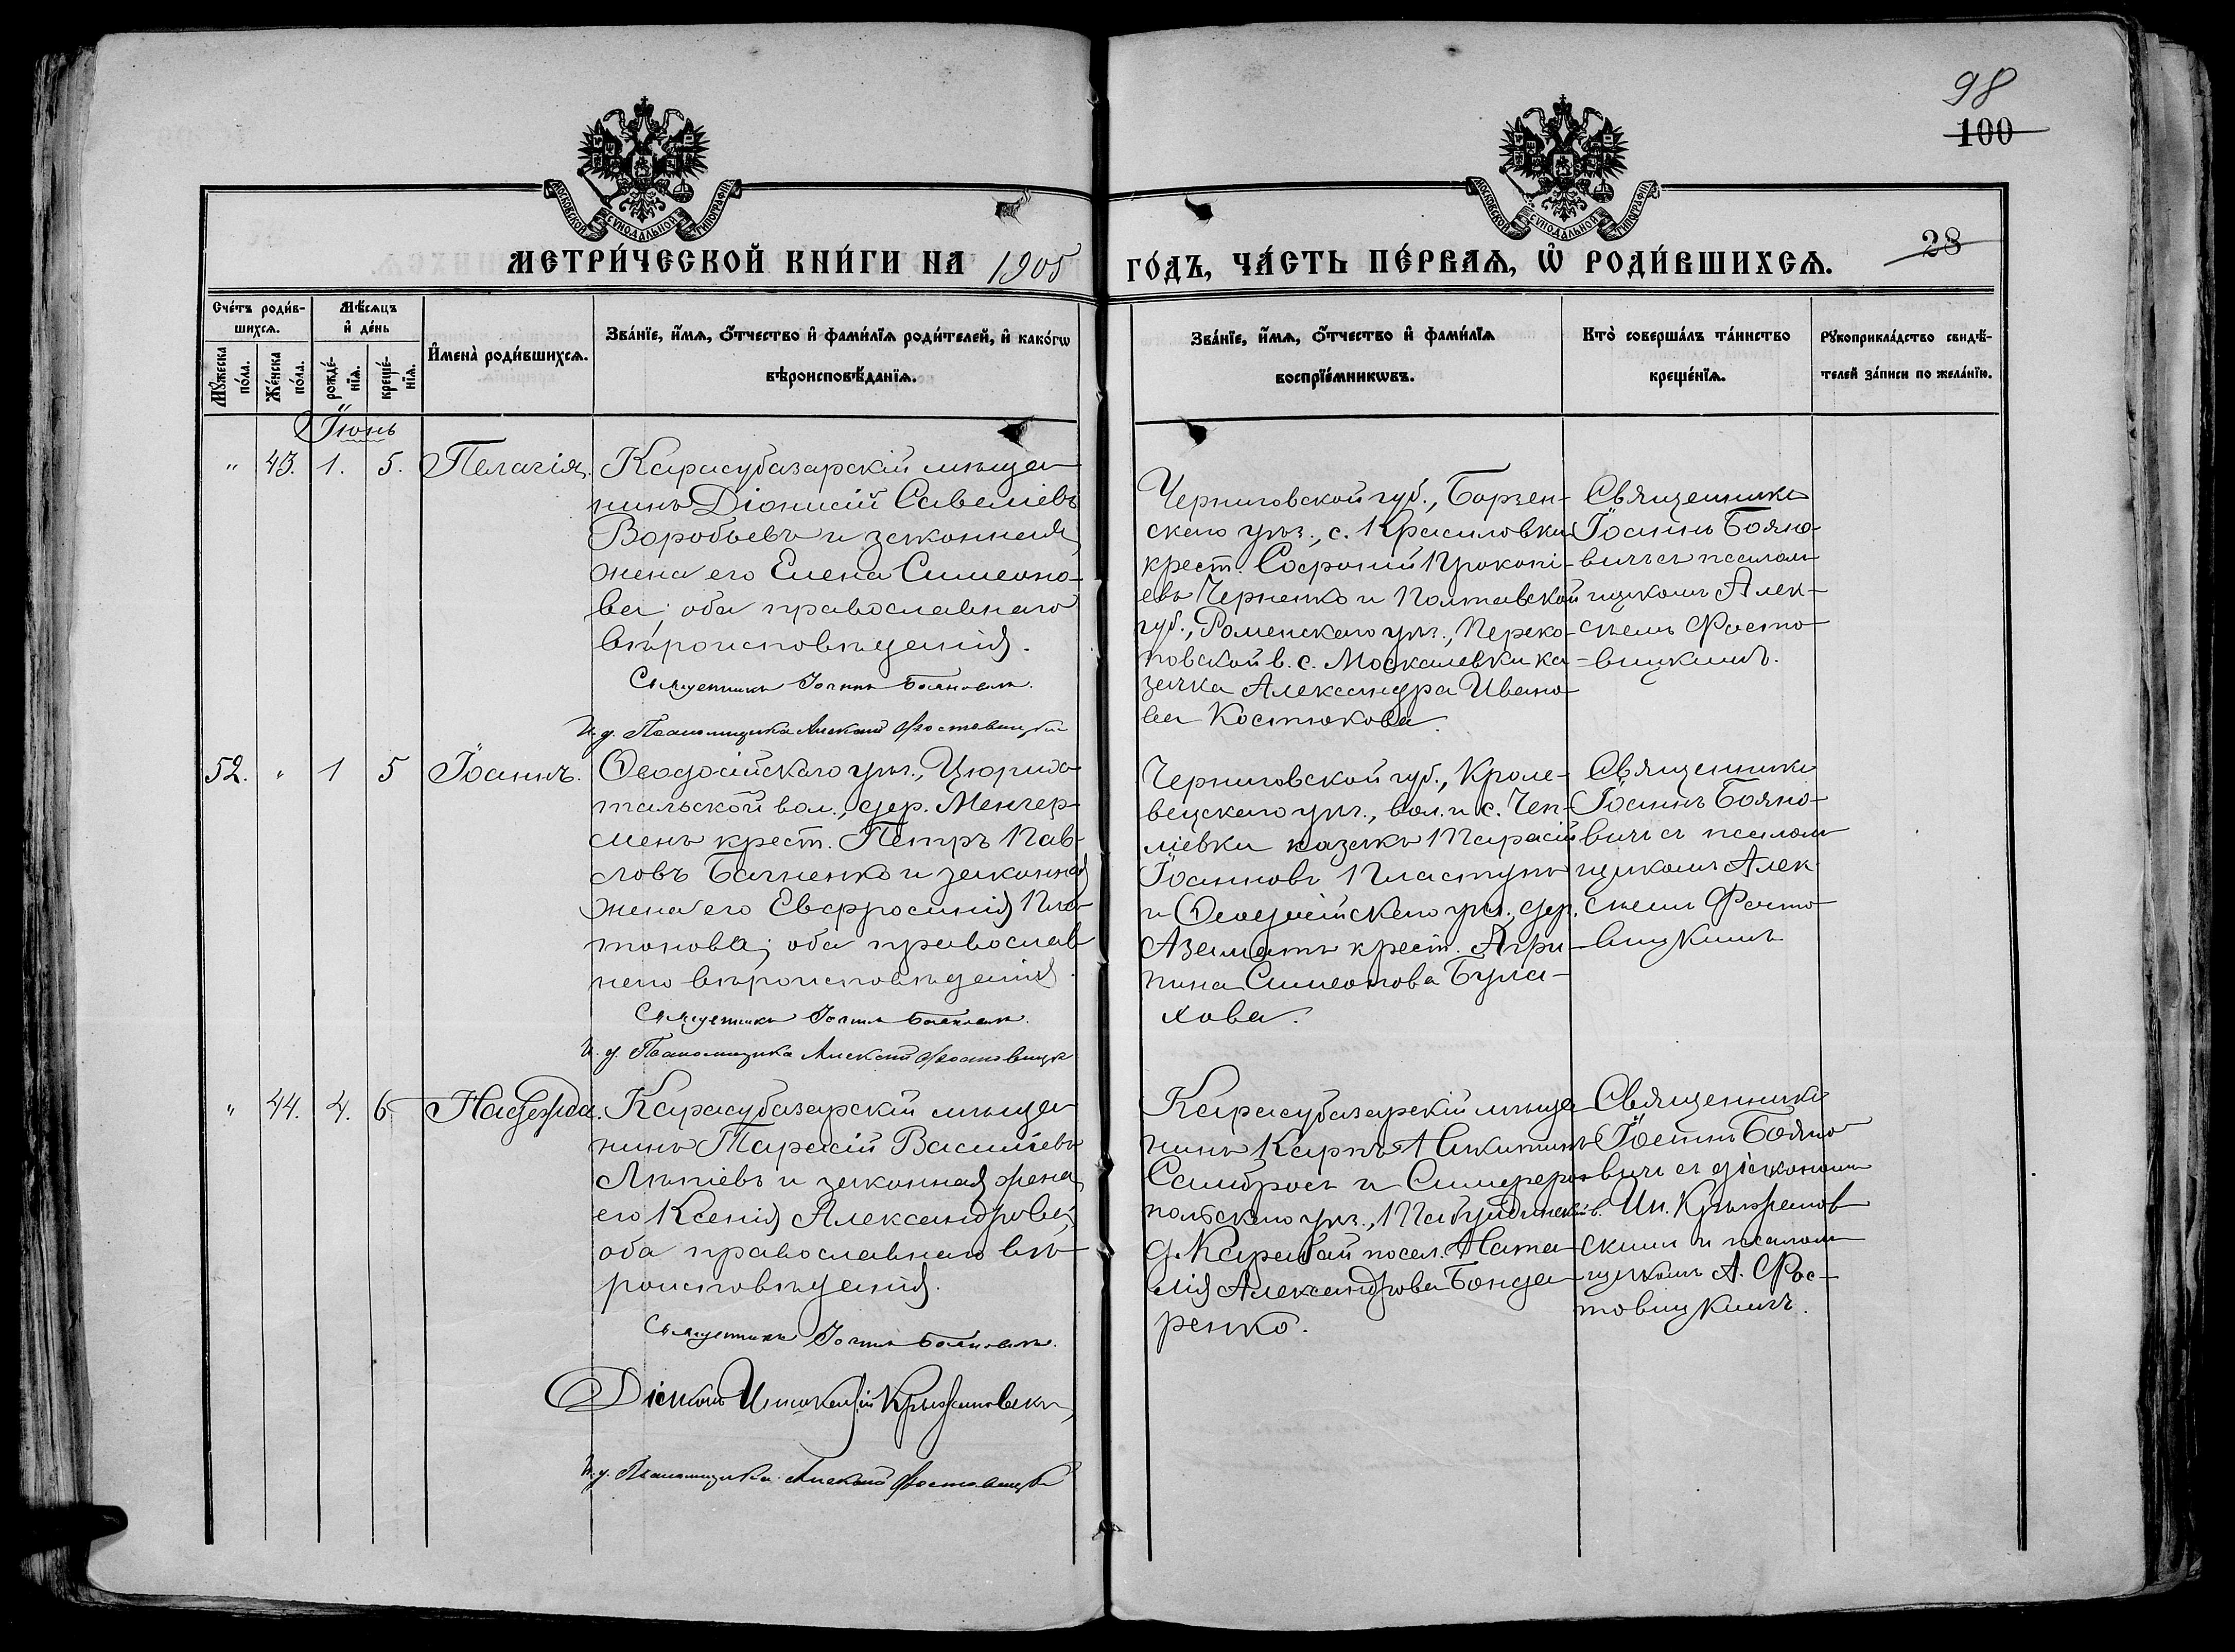 98
100
28
МОСКОВСКОЙ СѴНОДАЛЬНОЙ ТИПОГРАФІИ
МОСКОВСКОЙ СѴНОДАЛЬНОЙ ТИПОГРАФІИ
МЕТРИ́ЧЕСКОЙ КНИ́ГИ НА 1905
ГО́ДЪ, ЧА́СТЬ ПЕ́РВАѦ, Ѽ РОДИ́ВШИХСѦ.
Сче́тъ роди́в-
шихсѧ.
Мꙋ́жеска
по́ла.
Же́нска
по́ла.
Мѣ́сѧцъ
и҆ де́нь
рожде́-
нїѧ.
креще́-
нїѧ.
И҆мена̀ роди́вшихсѧ.
Зва́нїе, и҆́мѧ, ѻ҆́тчество и҆ фами́лїѧ роди́телей, и҆ како́гѡ
вѣроисповѣ́данїѧ.
Зва́нїе, и҆́мѧ, ѻ҆́тчество и҆ фами́лїѧ
воспрїе́мникѡвъ.
Кто̀ соверша́лъ та́инство
креще́нїѧ.
Рꙋкоприкла́дство свидѣ́-
телей за́писи по жела́нїю.
Іюнь
" 43. 1. 5. Пелагія.
Карасубазарскій мѣща-
нинъ Діонисій Савеліевъ
Воробьевъ и законная
жена его Елена Симеоно-
ва; оба православнаго
вѣроисповѣданія.
Священникъ Іоаннъ Бояновичъ.
И. д. Псаломщика Алексій Фостовицкій
Черниговской губ., Борзен-
скаго уѣз., с. Красиловки
крест. Софроній Прокопі-
евъ Черненко и Полтавской
губ., Роменскаго уѣз., Переко-
повской в. с. Москалевки ка-
зачка Александра Ивано-
ва Костюкова.
Священникъ
Іоаннъ Бояно-
вичъ съ псалом-
щикомъ Алек-
сѣемъ Фосто-
вицкимъ.
52. " 1 5 Іоаннъ.
Ѳеодосійскаго уѣз., Цюрих-
тальской вол., дер. Менгер-
менъ крест. Петръ Пав-
ловъ Багненко и законная
жена его Евфросинія Пла-
тонова; оба православ-
наго вѣроисповѣданія.
Священникъ Іоаннъ Бояновичъ.
И. д. Псаломщика Алексій Фостовицкій
Черниговской губ., Кроле-
вецскаго уѣз., вол. и с. Чеп-
ліевки казакъ Тарасій
Іоанновъ Пластунъ
и Ѳеодосійскаго уѣз., дер.
Азаматъ крест. Агри-
пина Симеонова Була-
хова.
Священникъ
Іоаннъ Бояно-
вичъ съ псалом-
щикомъ Алек-
сѣемъ Фосто-
вицкимъ
" 44. 4. 6. Надежда.
Карасубазарскій мѣща-
нинъ Тарасій Васильевъ
Лѣпіевъ и законная жена
его Ксенія Александрова;
оба православнаго вѣ-
роисповѣданія.
Священникъ Іоаннъ Бояновичъ.
Діаконъ Иннокентій Крыжановскій
И. д. Псаломщика Алексій Фостовицкій
Карасубазарскій мѣща-
нинъ Карпъ Никитинъ
Самбросъ и Симферо-
польскаго уѣз.,
д. Карабай посел. Ната-
лія Александрова Бонда-
ренко.
Священникъ
Іоаннъ Бояно-
вичъ съ діакономъ
Ин. Крыжанов-
скимъ и псалом-
щикомъ А. Фос-
товицкимъ.